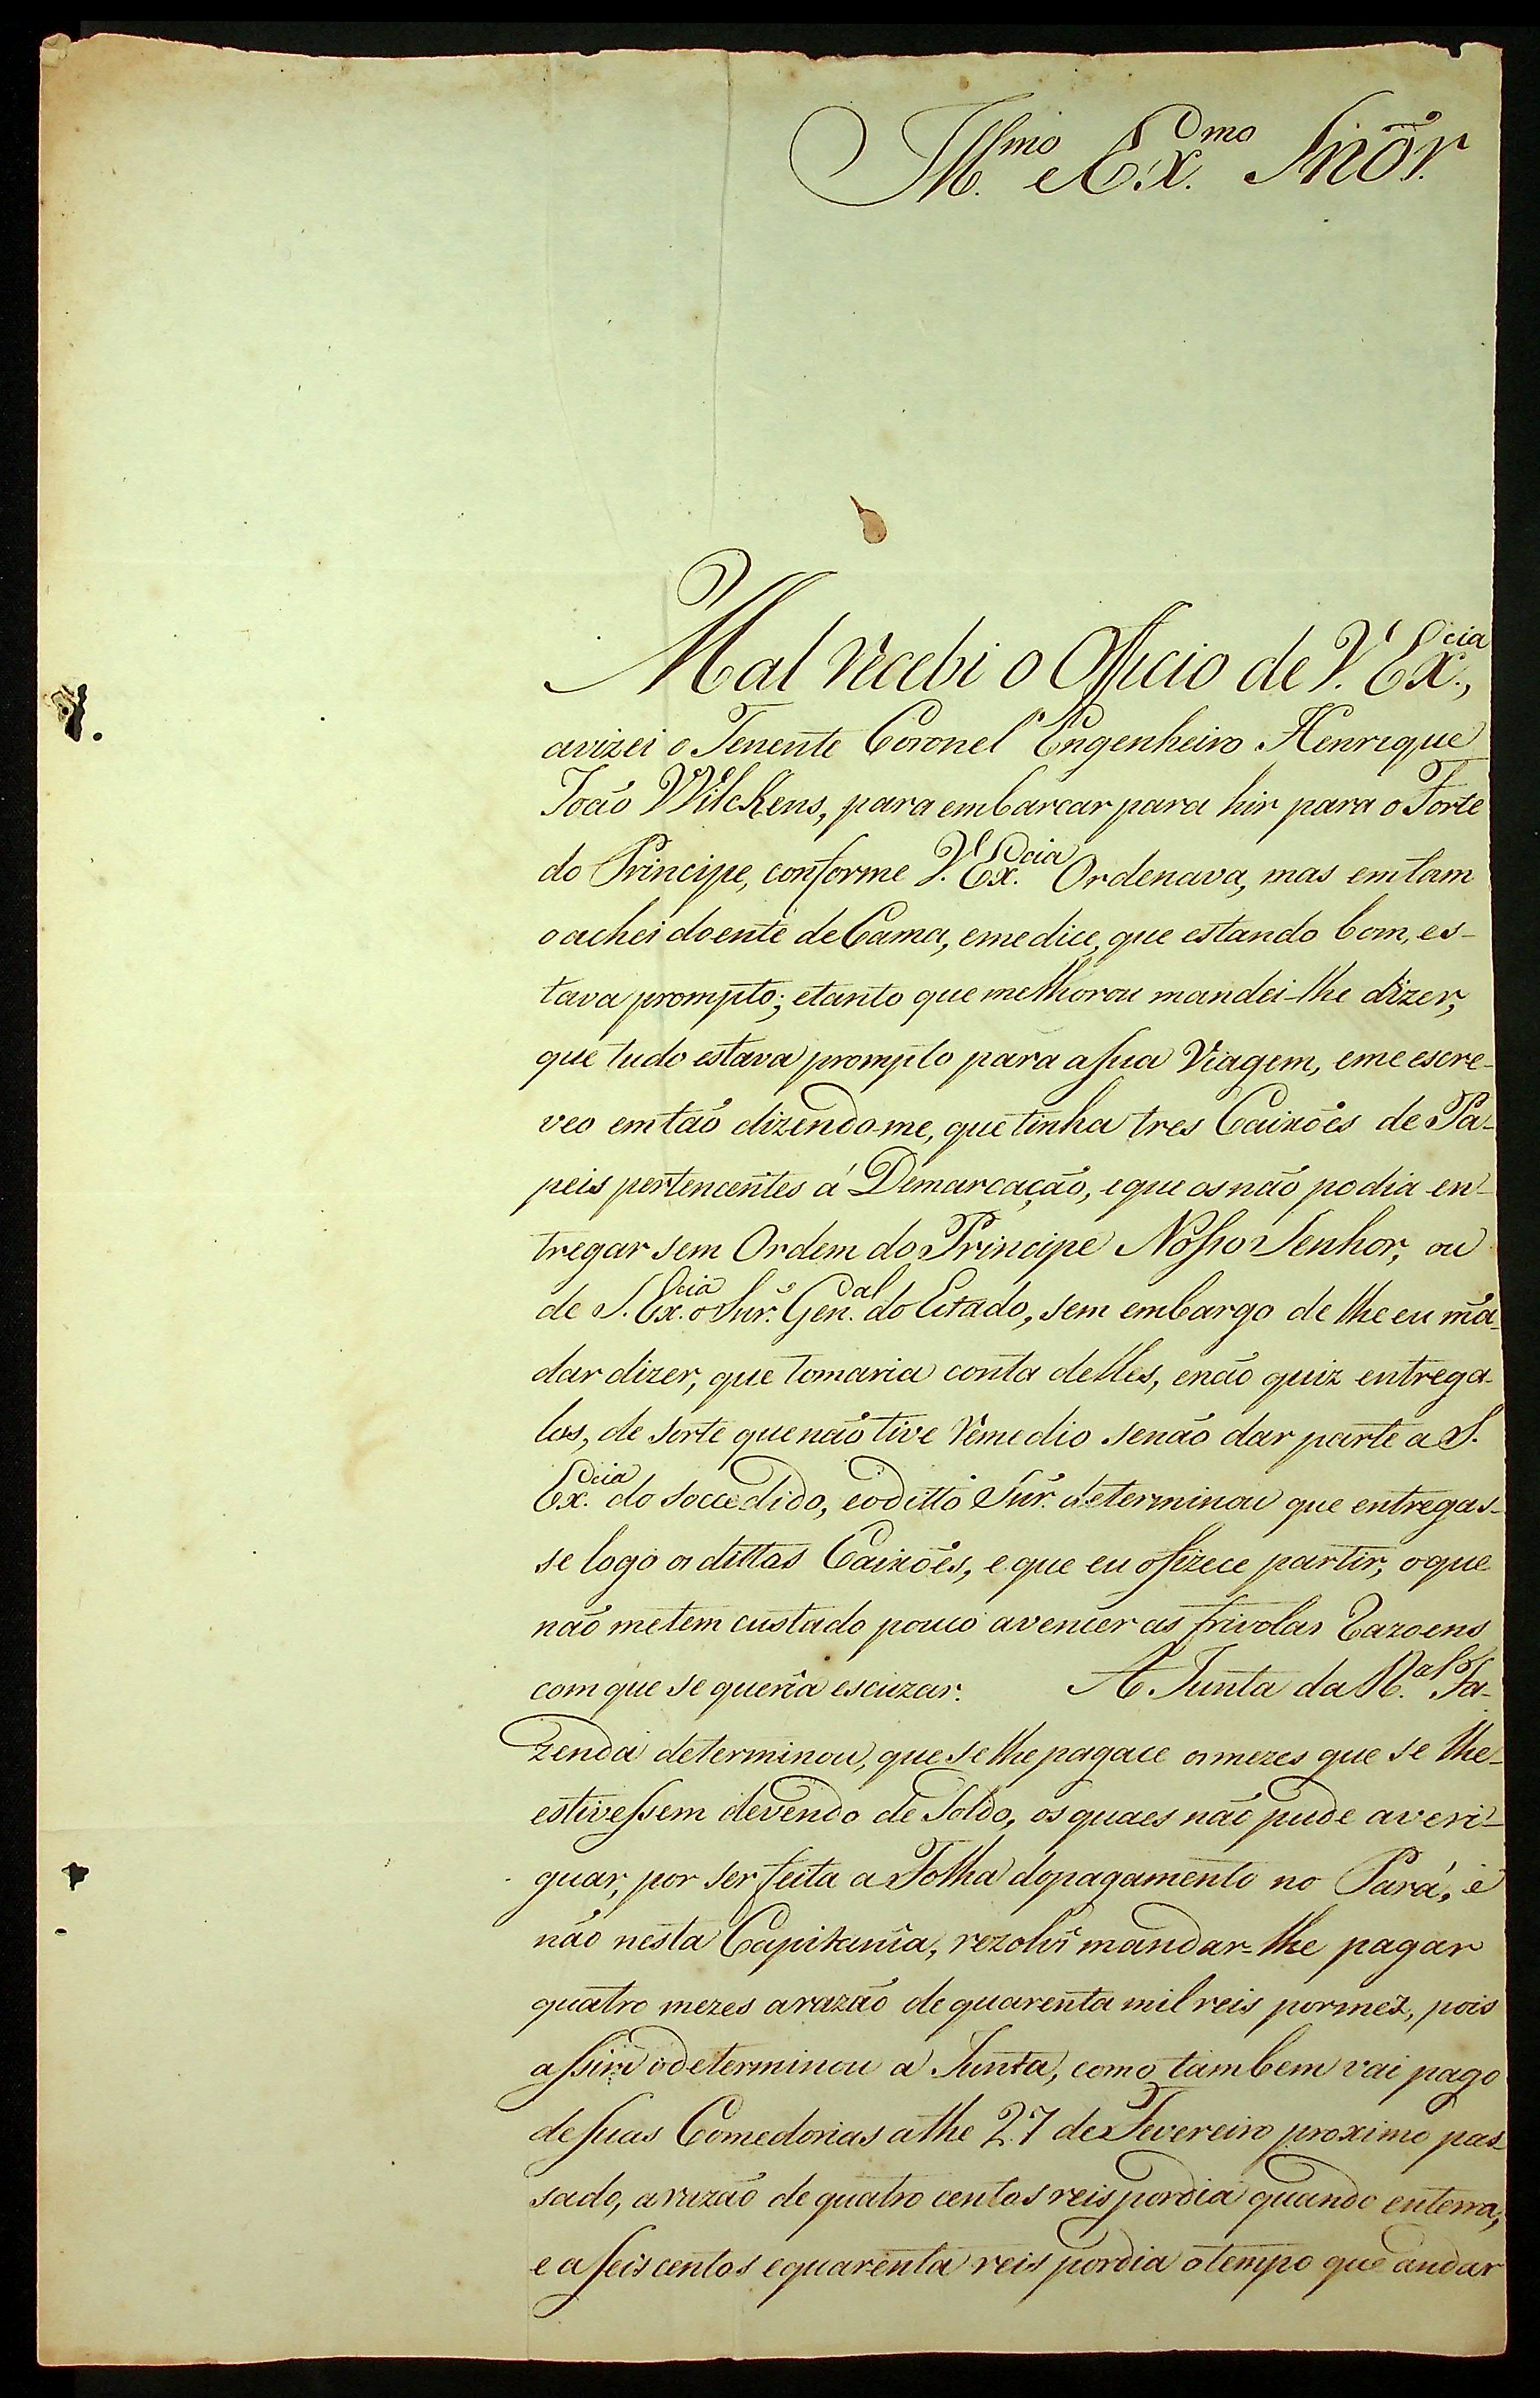 Ill.mo e Ex.mo Snõr.
Mal recebi o Officio de V. Ex.cia,
avizei o Tenente Coronel Engenheiro Henrique
João Wilckens, para embarcar para hir para o Forte
do Principe, conforme V. Ex.cia Ordenava, mas emtam
o achei doente de Cama, e me dice, que estando bom, es-
tava prompto; e tanto que melhorou mandei-lhe dizer,
que tudo estava prompto para a sua Viagem, e me escre-
veo emtão dizendo-me, que tinha tres Caixões de Pa-
peis pertencentes á Demarcação, e que os não podia en-
tregar sem Ordem do Principe Nosso Senhor, ou
de S. Ex.cia o Snr. Gen.al do Estado, sem embargo de lhe eu mã-
dar dizer, que tomaria conta delles, e não quiz entrega-
los, de sorte que não tive remedio senão dar parte a S.
Ex.cia do soccedido, e o ditto Snr. determinou que entregas-
se logo os dittos Caixões, e que eu o fizece partir, o que
não me tem custado pouco a vencer as frivolas Razoens
com que se queria escuzar. A Junta da R.al Fa-
zenda determinou, que se lhe pagace os mezes que se lhe
estivessem devendo de Soldo, os quaes não pude averi-
guar, por ser feita a Folha do pagamento no Pará, e
não nesta Capitania, rezolvi mandar-lhe pagar
quatro mezes a razão de quarenta mil reis por mez, pois
assim o determinou a Junta, como tambem vai pago
de suas Comedorias athe 27 de Fevereiro proximo pas-
sado, a razão de quatro centos reis por dia quando em terra,
e a seis centos e quarenta reis por dia o tempo que andar